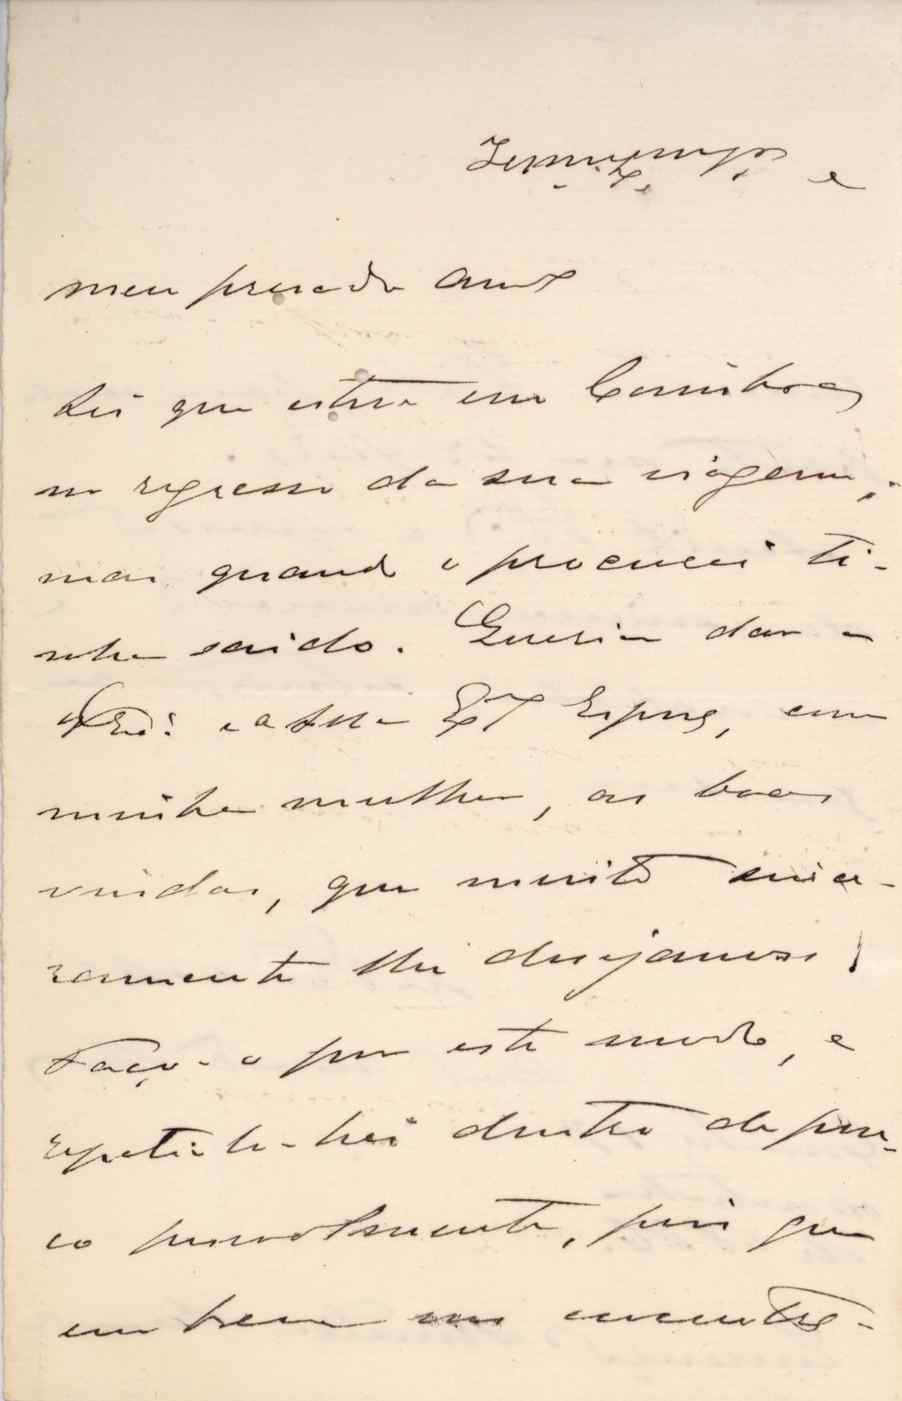 meu prezado am.º
Sei que esteve em Coimbra,
no regresso da sua viagem,
mas quando o procurei ti-
nha saido. Queria dar a
V. Ex.ª e a sua Ex.ma Espoza, com
minha mulher, as boas
vindas, que muito since-
ramente lhes desejamos!
Faço-o por este modo, e
repetil-o-hei dentro de pou-
co pessoalmente, pois que
em breve me encontra-